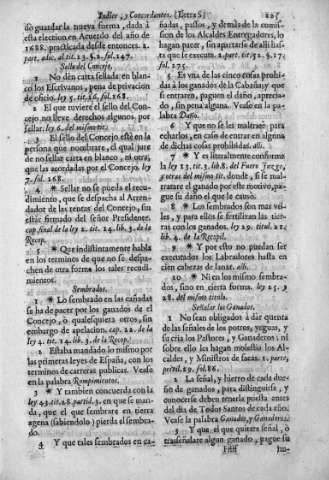 Indice, y Concordantes. (Letra S) 225
do guardar la nueva forma, dada à
esta eleccion en Acuerdo del año de
1688. practicada desde entonces. 2.
part. adic. al tit. 23. §.2. fol.247.
Sellar del Concejo.
1 No dèn carta sellada en blan-
co los Escrivanos, pena de privacion
de oficio. ley 3. tit. 16. fol.168.
2 El que tuviere el sello del Con-
cejo no lleve derechos algunos, por
sellar. ley 6. del mismo tit.
3 El sello del Concejo estè en la
persona que nombrare, el qual jure
de no sellar carta en blanco, ni otra,
que las acordadas por el Concejo. ley
7. fol.168.
4 * Sellar no se pueda el recu-
dimiento, que se despacha al Arren-
dador de las rentas del Concejo, sin
estàr firmado del señor Presidente.
cap. final de la ley 2. tit. 14. lib. 3. de la
Recop.
5 * Que indistintamente habla
en los terminos de que no se despa-
chen de otra forma los tales recudi-
mientos.
Sembrados.
1 * Lo sembrado en las cañadas
se ha de pacer por los ganados de el
Concejo, ò qualesquiera otros, sin
embargo de apelacion. cap. 22. de la
ley 4. tit. 14. lib. 3. de la Recop.
2 Estaba mandado lo mismo por
las primeras leyes de España, con los
terminos de carreras publicas. Vease
en la palabra Rompimientos.
3 * Y tambien concuerda con la
ley 43. tit. 28. partid. 3. en que se man-
da, que el que sembrare en tierra
agena (sabiendolo) pierda el sembra-
do.
4 Y que tales sembrados en ca-
ñadas, passos, y demàs de la comis-
sion de los Alcaldes Entregadores, lo
hagan pacer, sin apartarse de alli has-
ta que se execute. 2. part. tit. 52. §. 17.
fol. 275.
5 En vna de las cinco cosas prohibi-
das à los ganados de la Cabaña; y que
si entraren, paguen el daño, aprecia-
do, sin pena alguna. Vease en la pa-
labra Daño.
6 * Y que no se les maltrate para
echarlos, en caso de entrar en alguna
de dichas cosas prohibidas. alli.
7 * Y es literalmente conforme à
la ley 13. tit. 3. lib. 8. del Fuero Juzgo,
y otras del mismo tit. donde, si se mal-
tratare el ganado por este motivo, pa-
gue su daño el que le causò.
8 * Los sembrados son mas vti-
les, y para ellos se fertilizan las tier-
ras con los ganados. ley 29. titul. 21.
lib. 4. de la Recopil.
9 * Y por esto no puedan ser
executados los Labradores hasta en
cien cabezas de lanar. alli.
10 * Ni en los mismos sembra-
dos, sino en cierta forma. ley 25. y
28. del mismo titulo.
Señalar los Ganados.
1 No sean obligados à dàr quenta
de las señales de los potros, yeguas, y
su cria los Pastores, y Ganaderos; ni
sobre ello les hagan molestia los Al-
caldes, y Ministros de sacas. 1. parte,
privil. 29. fol.86.
2 La señal, y hierro de cada due-
ño de ganados, para distinguirse, y
conocerse deben tenerla puesta antes
del dia de Todos Santos de cada año.
Vease la palabra Ganados, y Ganaderos.
3 Y que el que quitare señal, ò
trasseñalare algun ganado, pague su